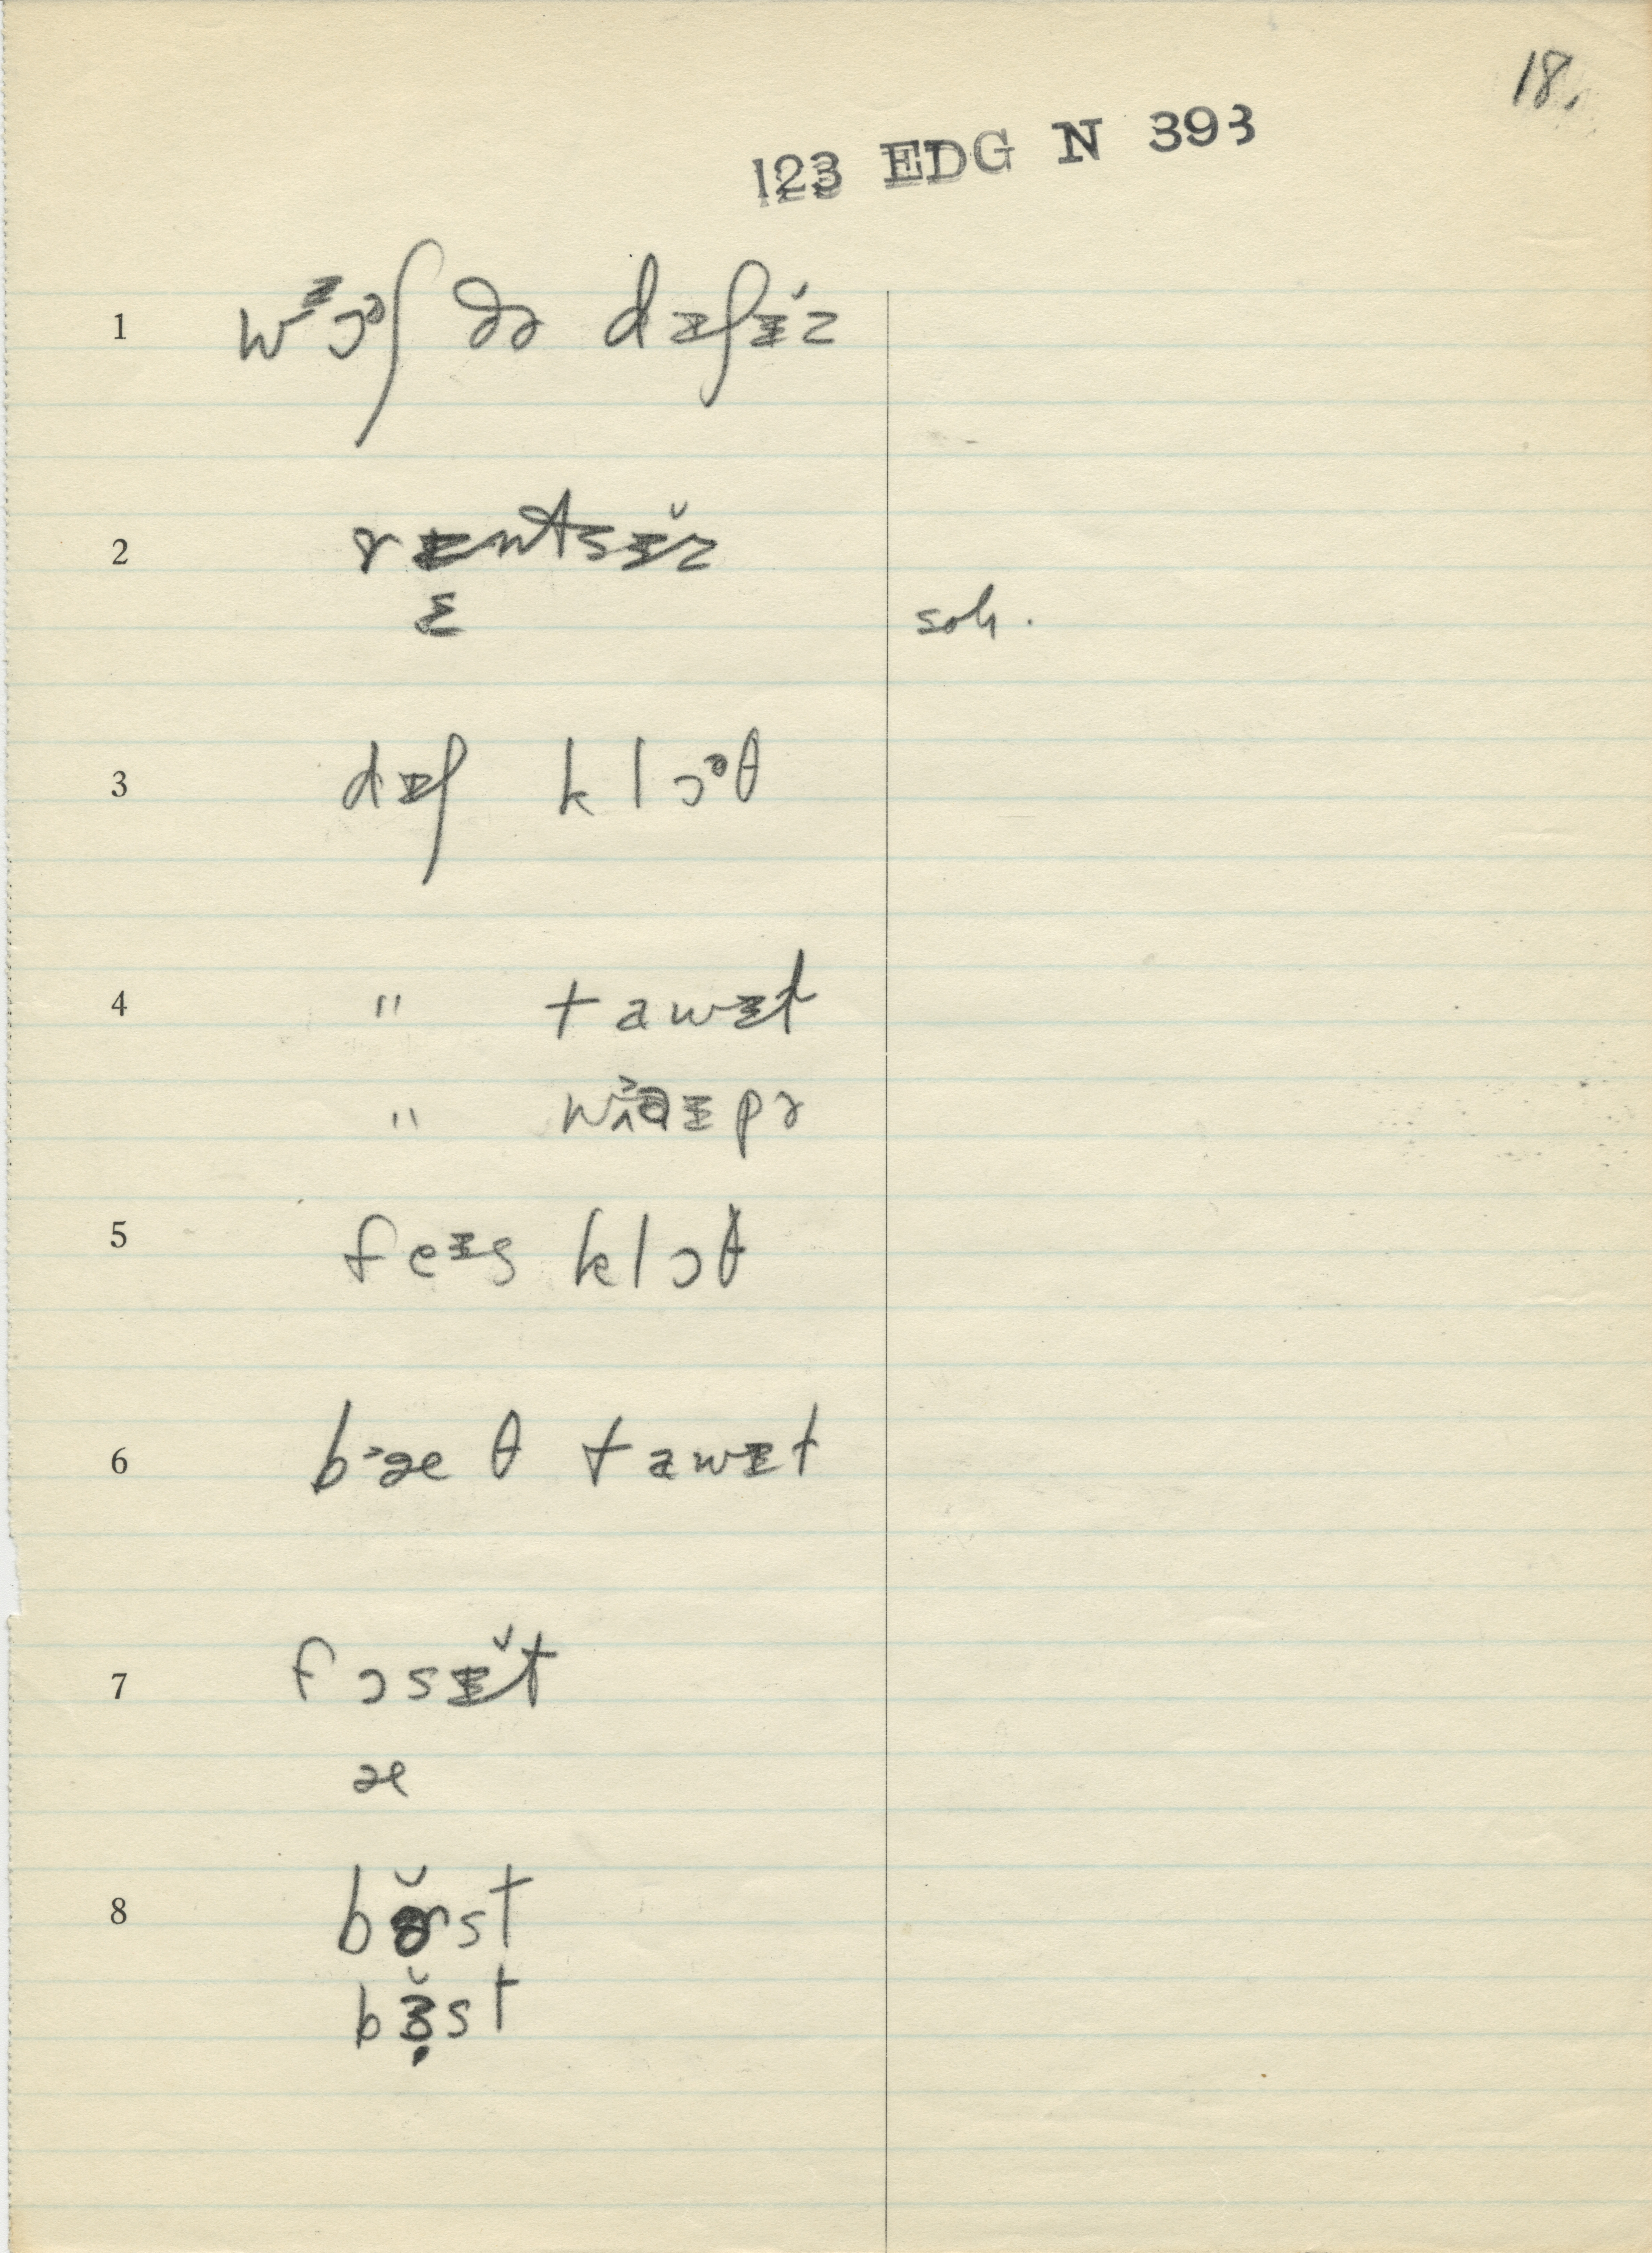 18.
123 EDG N 393
1 wᶾɔᵊʃ ðə dɪʃɪz
2 rɪntsɪ̆z
ɛ
sah.
3 dɪʃ klɔᵊθ
4 " tawɪt
" wɪpɚ
5 feɪs klɔθ
6 bᵌæθ tawɪt
7 fɔsɪ̆t
æ
8 bɚ̆st
bɜ̣̆st